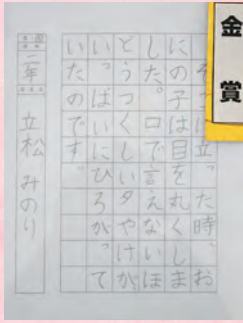 金賞
立った時、お
にの子は目を丸くしま
した。口で言えないほ
どうつくしい夕やけが
いっぱいにひろがって
いたのです。
二年 立松 みのり